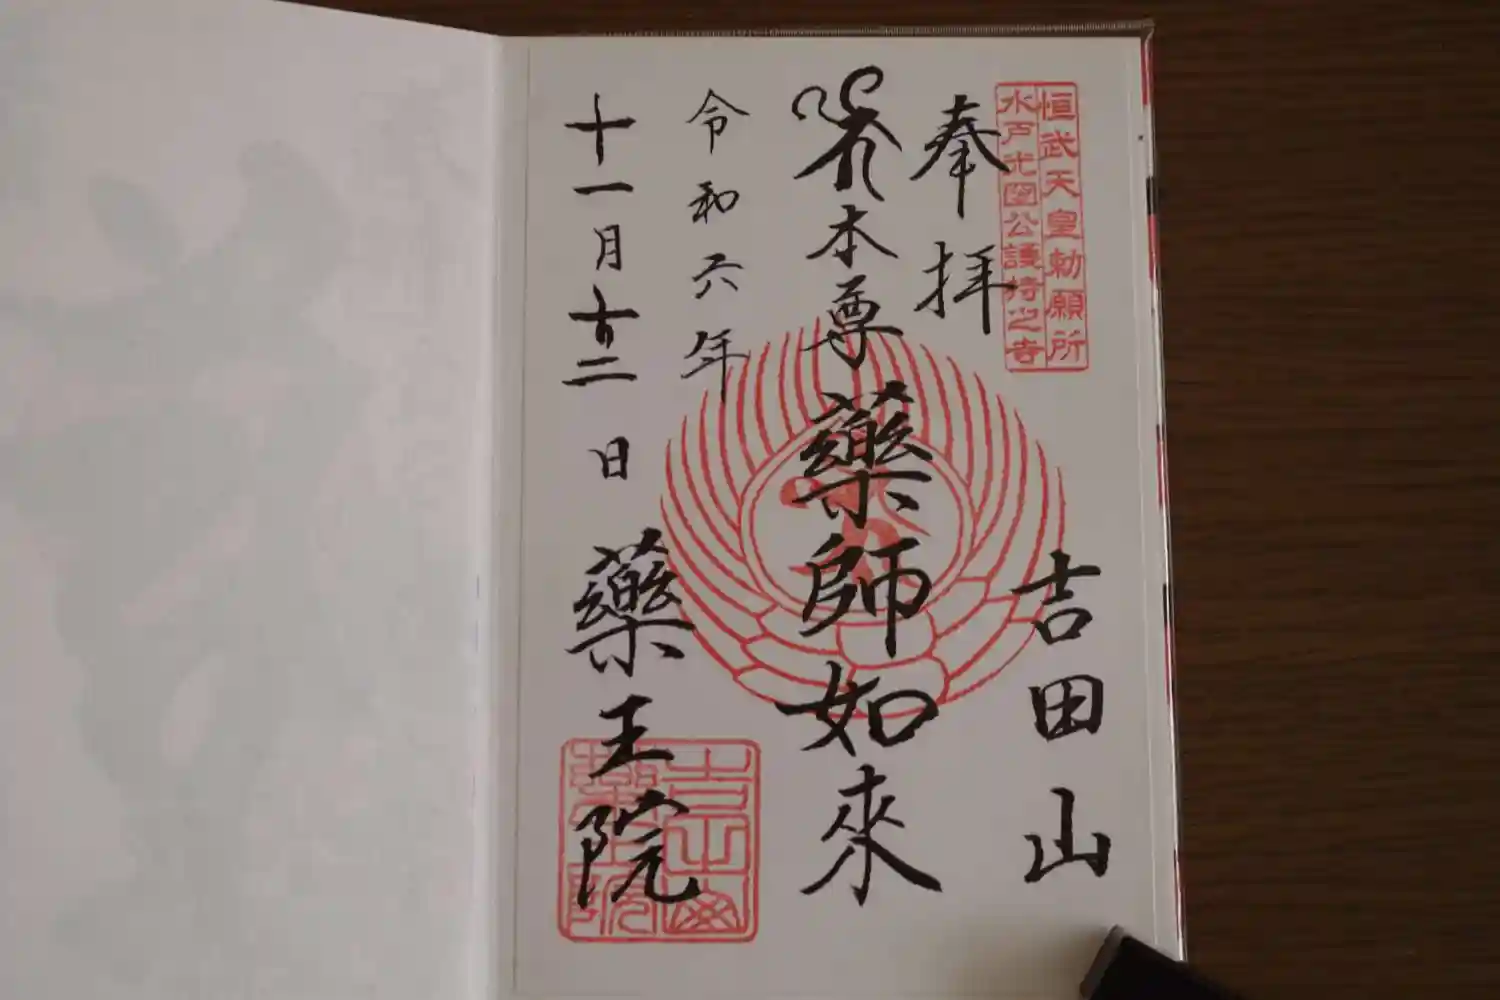 恒武天皇勅願所
水戸光圀公護持之寺
吉田山
奉拝
本尊藥師如來
令和六年
十一月 二日
藥王院
藥王院